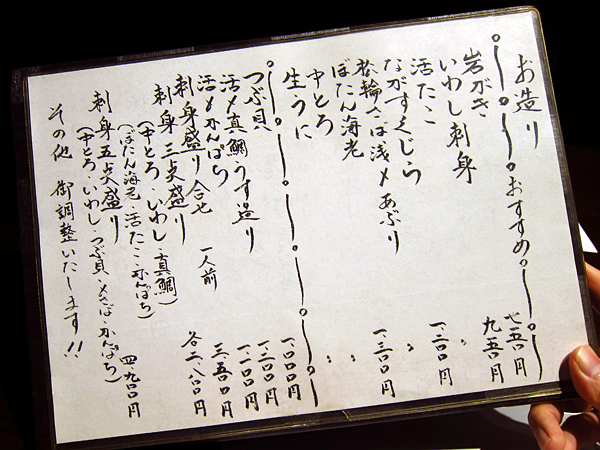 お造り おすすめ
岩がき 七五〇円
いわし刺身 九五〇円
活たこ 〃
ながすくじら 一、二〇〇円
松輪さば浅〆あぶり 〃
ぼたん海老 一、三〇〇円
中とろ 〃
生うに 〃
つぶ貝 一、〇〇〇円
活〆真鯛うす造り 一、二〇〇円
活〆かんぱち 一、一〇〇円
刺身盛り合せ 一人前 三、五〇〇円
刺身三点盛り 各二、八〇〇円
(中とろ・いわし・真鯛)
(ぼたん海老・活たこ・かんぱち)
刺身五点盛り 四、九〇〇円
(中とろ・いわし・つぶ貝・〆さば・かんぱち)
その他 御調整いたします!!